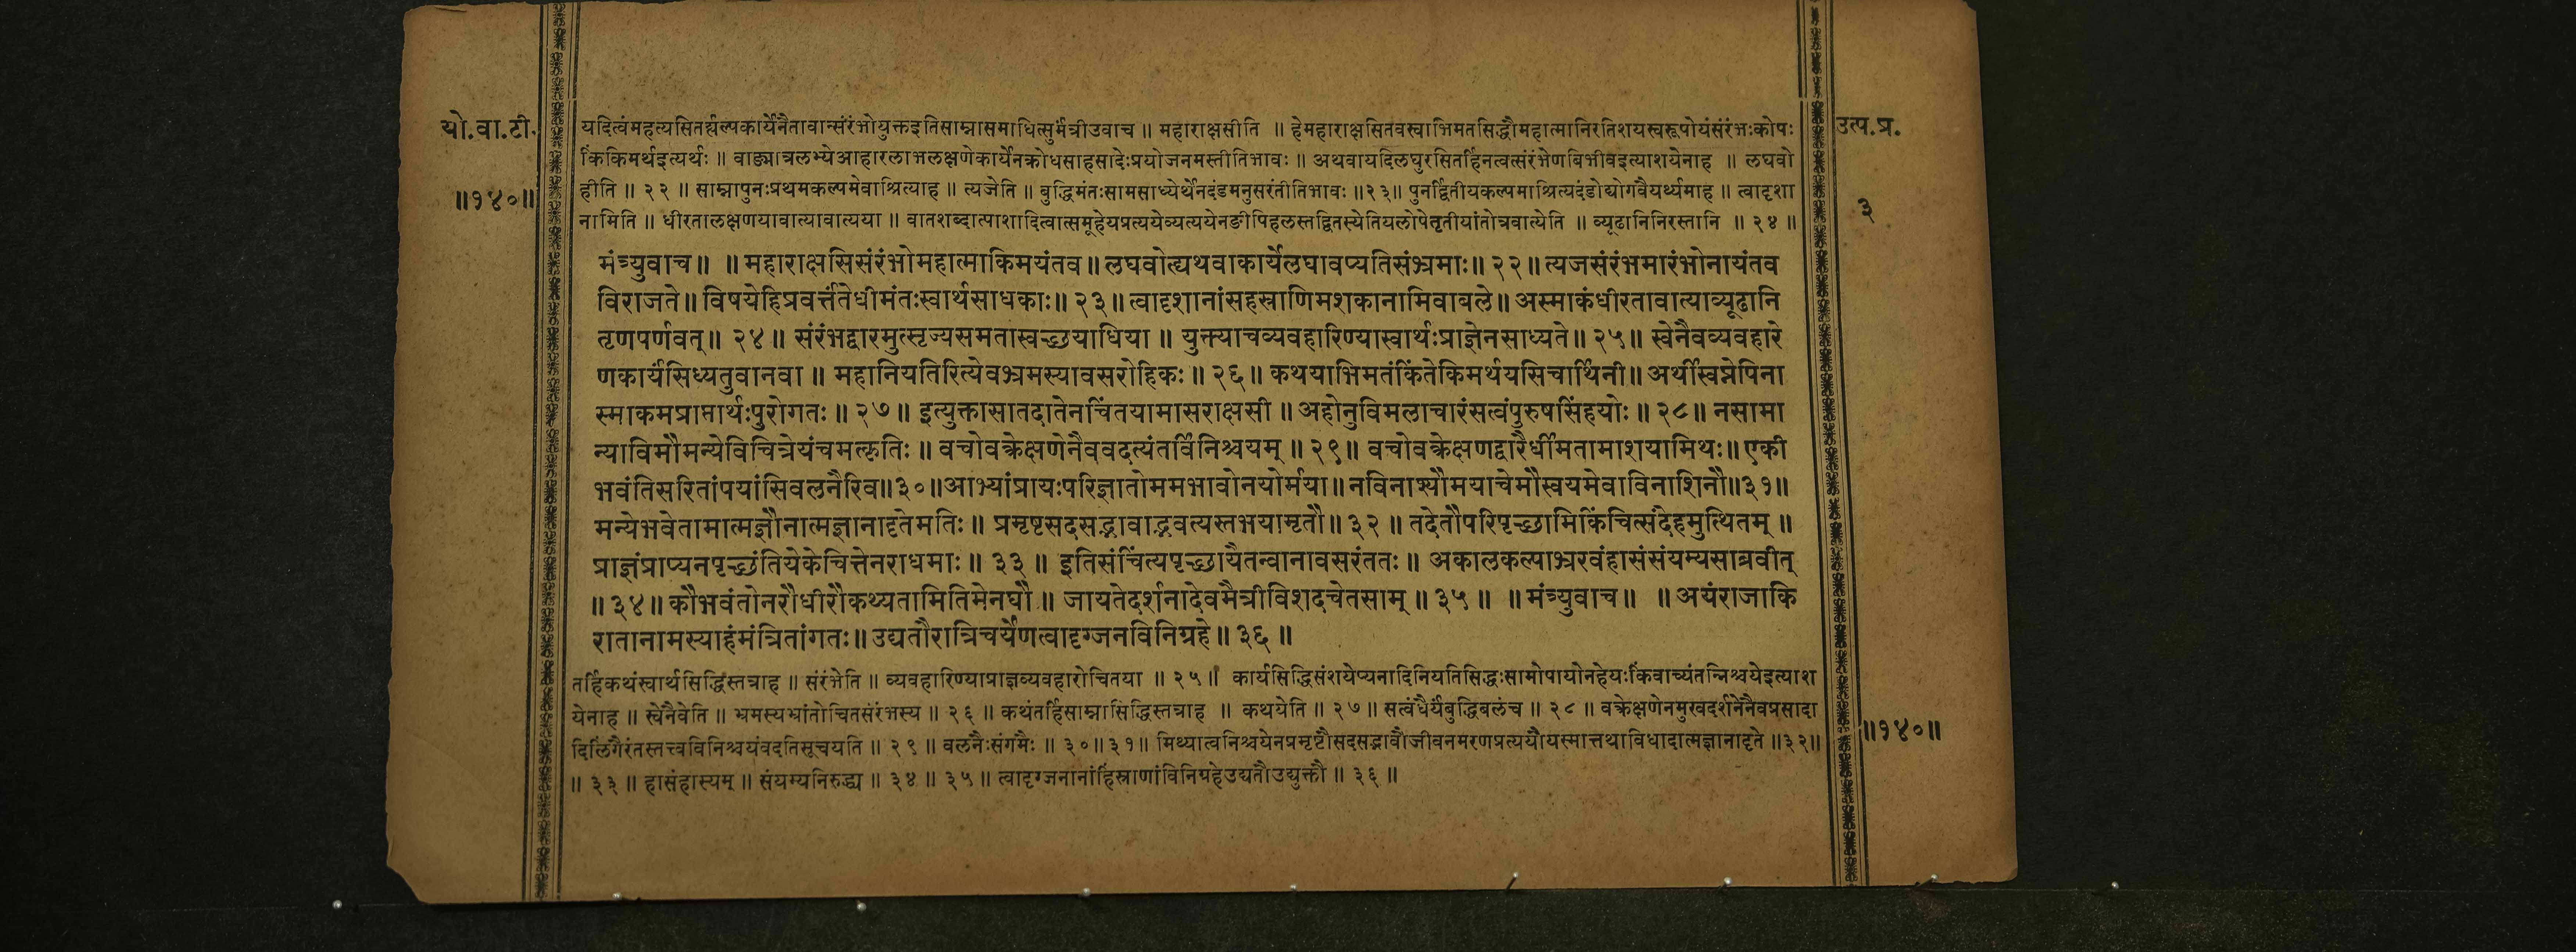 यो.वा.टी.
॥१४०॥
उत्प.प्र.
३
यदित्वंमहत्यसितर्ह्यल्पकार्येनैतावान्संरंभोयुक्तइतिसाम्नासमाधित्सुर्मंत्रीउवाच ॥ महाराक्षसीति ॥ हेमहाराक्षसितवस्वाभिमतसिद्धौमहात्मानिरतिशयस्वरूपोयंसंरंभःकोपः
किंकिमर्थइत्यर्थः ॥ वाङ्मात्रलभ्येआहारलाभलक्षणेकार्येनक्रोधसाहसादेःप्रयोजनमस्तीतिभावः ॥ अथवायदिलघुरसितर्हिनत्वत्संरंभेणबिभीवइत्याशयेनाह ॥ लघवो
हीति ॥ २२ ॥ साम्नापुनःप्रथमकल्पमेवाश्रित्याह ॥ त्यजेति ॥ बुद्धिमंतःसामसाध्येर्थेनदंडमनुसरंतीतिभावः ॥२३॥ पुनर्द्वितीयकल्पमाश्रित्यदंडोद्योगवैयर्थ्यमाह ॥ त्वादृशा
नामिति ॥ धीरतालक्षणयावात्यावात्यया ॥ वातशब्दात्पाशादित्वात्समूहेयप्रत्ययेव्यत्ययेनङीपिहलस्तद्धितस्येतियलोपेतृतीयांतोत्रवात्येति ॥ व्यूढानिनिरस्तानि ॥ २४ ॥
मंत्र्युवाच ॥ ॥ महाराक्षसिसंरंभोमहात्माकिमयंतव ॥ लघवोत्द्यथवाकार्येलघावप्यतिसंभ्रमाः ॥ २२ ॥ त्यजसंरंभमारंभोनायंतव
विराजते ॥ विषयेहिप्रवर्त्तंतेधीमंतःस्वार्थसाधकाः ॥ २३ ॥ त्वादृशानांसहस्राणिमशकानामिवाबले ॥ अस्माकंधीरतावात्याव्यूढानि
तृणपर्णवत् ॥ २४ ॥ संरंभद्वारमुत्सृज्यसमतास्वच्छयाधिया ॥ युक्त्याचव्यवहारिण्यास्वार्थःप्राज्ञेनसाध्यते ॥ २५ ॥ स्वेनैवव्यवहारे
णकार्यंसिध्यतुवानवा ॥ महानियतिरित्येवभ्रमस्यावसरोहिकः ॥ २६ ॥ कथयाभिमतंकिंतेकिमर्थयसिचार्थिनी ॥ अर्थीस्वप्नेपिना
स्माकमप्राप्तार्थःपुरोगतः ॥ २७ ॥ इत्युक्तासातदातेनचिंतयामासराक्षसी ॥ अहोनुविमलाचारंसत्वंपुरुषसिंहयोः ॥ २८ ॥ नसामा
न्याविमौमन्येविचित्रेयंचमत्कृतिः ॥ वचोवक्रेक्षणेनैववदत्यंतर्विनिश्चयम् ॥ २९ ॥ वचोवक्रेक्षणद्वारैर्धीमतामाशयामिथः ॥ एकी
भवंतिसरितांपयांसिवलनैरिव ॥ ३० ॥ आभ्यांप्रायःपरिज्ञातोममभावोनयोर्मया ॥ नविनाश्यौमयाचेमौस्वयमेवाविनाशिनौ ॥३१॥
मन्येभवेतामात्मज्ञौनात्मज्ञानादृतेमतिः ॥ प्रमृष्टसदसद्भावाद्भवत्यस्तभयामृतौ ॥ ३२ ॥ तदेतौपरिपृच्छामिकिंचित्संदेहमुत्थितम् ॥
प्राज्ञंप्राप्यनपृच्छंतियेकेचित्तेनराधमाः ॥ ३३ ॥ इतिसंचिंत्यपृच्छायैतन्वानावसरंततः ॥ अकालकल्पाभ्ररवंहासंसंयम्यसाब्रवीत्
॥ ३४ ॥ कौभवंतोनरौधीरौकथ्यतामितिमेनघौ ॥ जायतेदर्शनादेवमैत्रीविशदचेतसाम् ॥ ३५ ॥ ॥ मंत्र्युवाच ॥ ॥ अयंराजाकि
रातानामस्याहंमंत्रितांगतः ॥ उद्यतौरात्रिचर्येणत्वादृग्जनविनिग्रहे ॥ ३६ ॥
तर्हिकथंस्वार्थसिद्धिस्तत्राह ॥ संरंभेति ॥ व्यवहारिण्याप्राज्ञव्यवहारोचितया ॥ २५ ॥ कार्यसिद्धिसंशयेप्यनादिनियतिसिद्धःसामोपायोनहेयःकिंवाच्यंतन्निश्चयेइत्याश
येनाह ॥ स्वेनैवेति ॥ भ्रमस्यभ्रांतोचितसंरंभस्य ॥ २६ ॥ कथंतर्हिसाम्नासिद्धिस्तत्राह ॥ कथयेति ॥ २७ ॥ सत्वंधैर्यंबुद्धिबलंच ॥ २८ ॥ वक्रेक्षणेनमुखदर्शनेनैवप्रसादा
दिलिंगैरंतस्तत्त्वविनिश्चयंवदतिसूचयति ॥ २९ ॥ वलनैःसंगमैः ॥ ३० ॥ ३१ ॥ मिथ्यात्वनिश्चयेनप्रमृष्टौसदसद्भावौजीवनमरणप्रत्ययौयस्मात्तथाविधादात्मज्ञानादृते ॥३२॥
॥ ३३ ॥ हासंहास्यम् ॥ संयम्यनिरुद्ध्य ॥ ३४ ॥ ३५ ॥ त्वादृग्जनानांहिंस्राणांविनिग्रहेउद्यतौउद्युक्तौ ॥ ३६ ॥
॥१४०॥